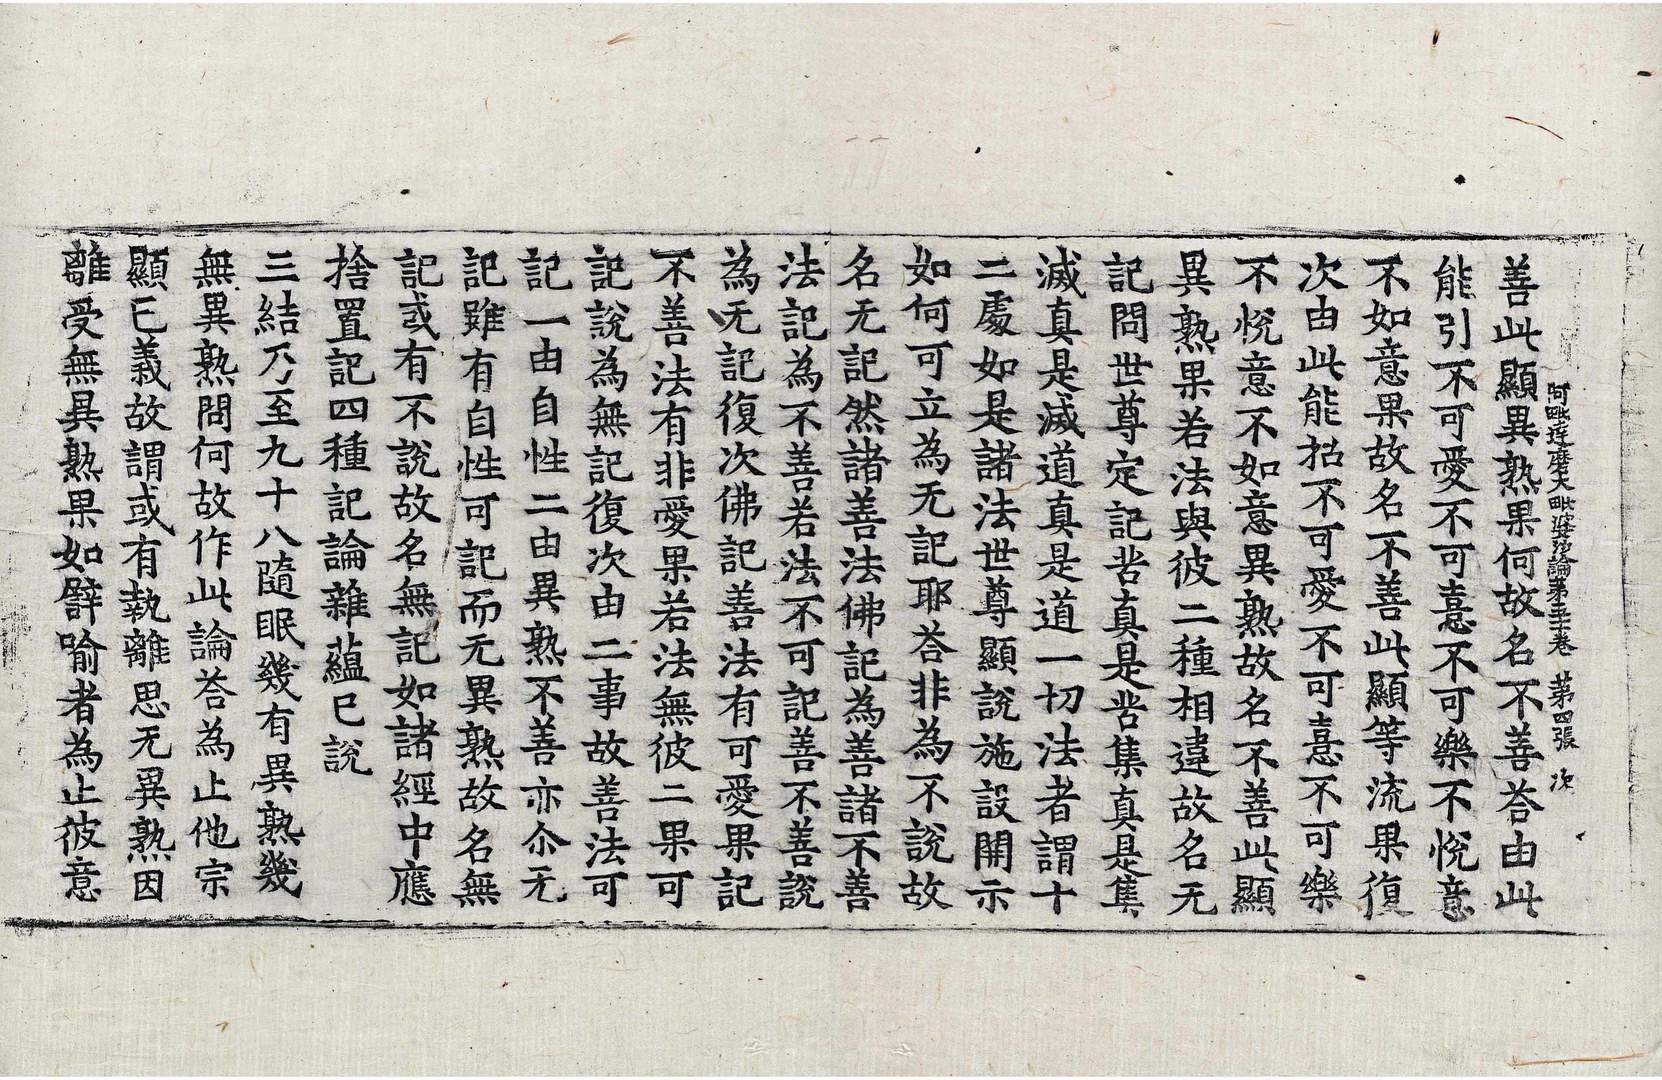 阿毗達磨大毗婆沙論第五十一卷 第四張 次
善此顯異熟果何故名不善荅由此
能引不可愛不可憙不可樂不悅意
不如意果故名不善此顯等流果復
次由此能招不可愛不可憙不可樂
不悅意不如意異熟故名不善此顯
異熟果若法與彼二種相違故名无
記問世尊定記苦真是苦集真是集
滅真是滅道真是道一切法者謂十
二處如是諸法世尊顯說施設開示
如何可立為无記耶荅非為不說故
名无記然諸善法佛記為善諸不善
法記為不善若法不可記善不善說
為无記復次佛記善法有可愛果記
不善法有非愛果若法無彼二果可
記說為無記復次由二事故善法可
記一由自性二由異熟不善亦尒无
記雖有自性可記而无異熟故名無
記或有不說故名無記如諸經中應
捨置記四種記論雜蘊已說
三結乃至九十八隨眠幾有異熟幾
無異熟問何故作此論荅為止他宗
顯已義故謂或有執離思无異熟因
離受無異熟果如譬喻者為止彼意